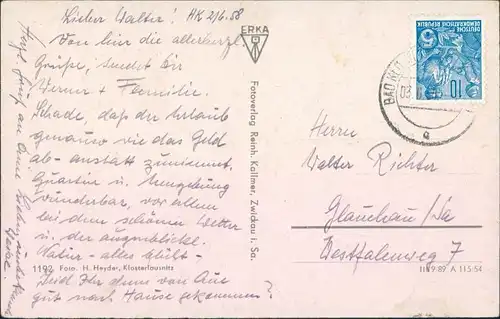 Lieber Walter! 2/6.58
Von hier die allerherzl.
Grüße, sendet Dir
Werner + Familie.
Schade, daß der Urlaub
genauso wie das Geld
ab- anstatt zunimmt.
Quartier u. Umgebung
wunderbar, vor allem
bei dem schönen Wetter
u. der augenblickl.
Natur - alles blüht -
Seid Ihr denn von Aue
gut nach Hause gekommen?
1192 Foto. H. Heyder, Klosterlausnitz
ERKA
Fotoverlag Reinh. Kallmer, Zwickau i. Sa.
DEUTSCHE
DEMOKRATISCHE REPUBLIK
5
10
BAD
Herrn
Walter Richter
Glauchau/Sa
Westfalenweg 7
II/9/89 A 115/54